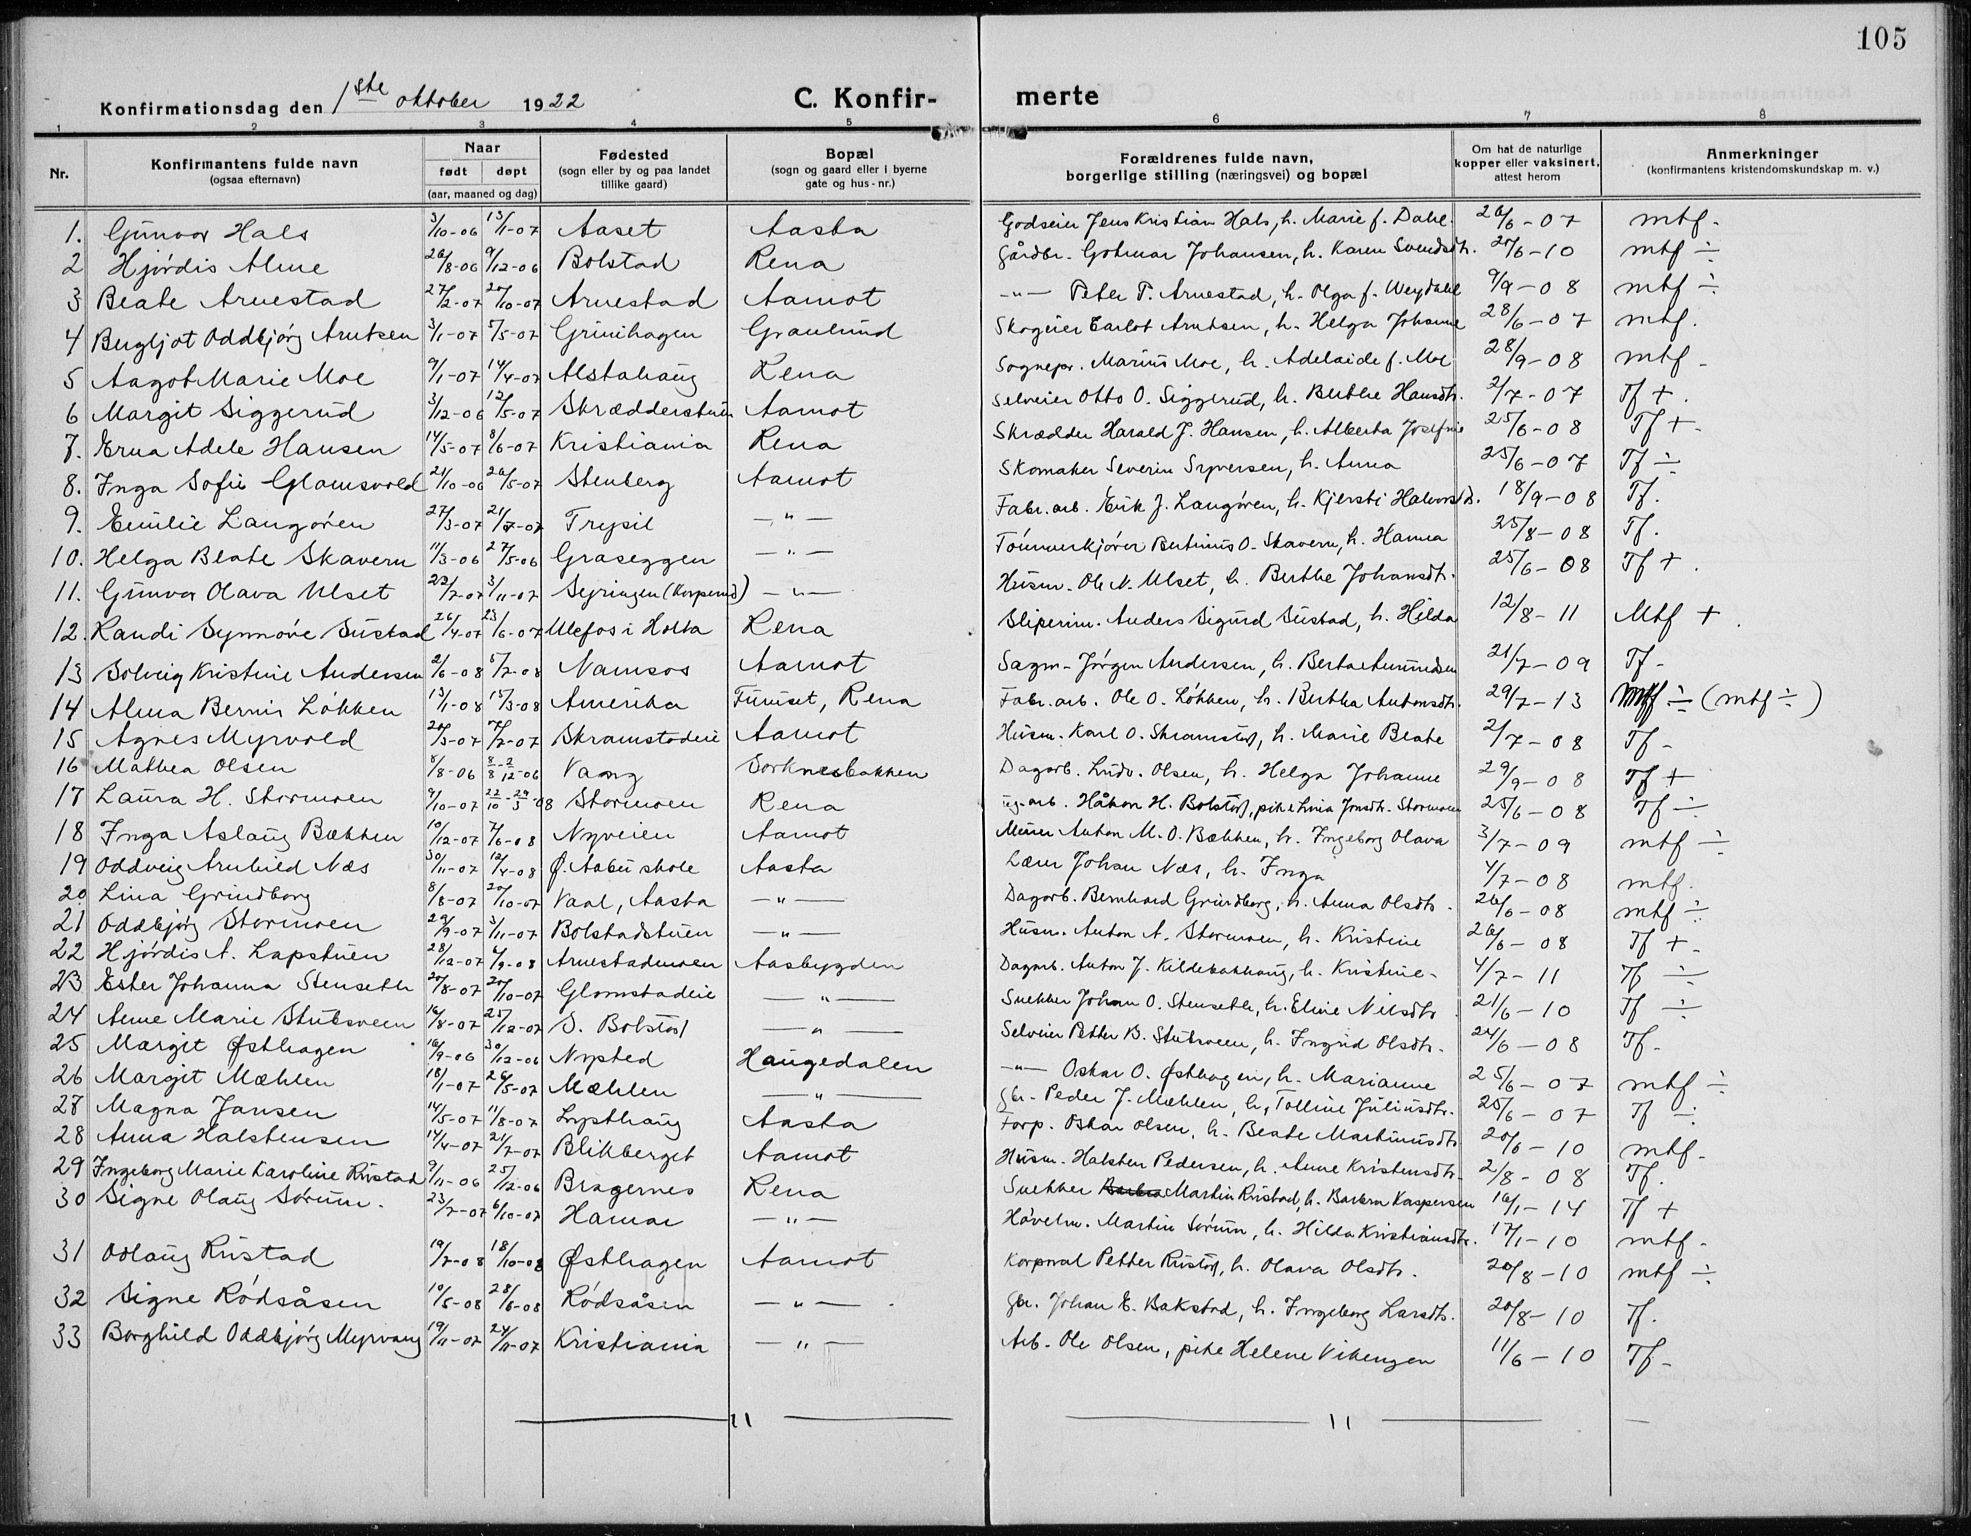 105
Konfirmationsdag den 1ste oktober 1922 C. Konfir- merte
1 2 3 4 5 6 7 8
Nr. Konfirmantens fulde navn (ogsaa efternavn) Naar født døpt (aar, maaned og dag) Fødested (sogn eller by og paa landet tillike gaard) Bopæl (sogn og gaard eller i byerne gate og hus-nr.) Forældrenes fulde navn, borgerlige stilling (næringsvei) og bopæl Om hat de naturlige kopper eller vaksinert, attest herom Anmerkninger (konfirmantens kristendomskundskap m. v.)
1. Gunvor Hals 3/10-06 13/1-07 Aaset Aasta Godseier Jens Kristian Hals, h. Marie f. Dahl. 26/6-07 mtf.
2 Hjørdis Alme 26/8-06 9/12-06 Bolstad Rena Gårdbr. Gotmar Johansen, h. Karen Svendsdtr. 27/6-10 mtf ÷
3 Beate Arnestad 27/2-07 20/10-07 Arnestad Aamot -"- Peter T. Arnestad, h. Olga f. Weydahl 9/9-08 mtf ÷
4 Bergljot Oddbjørg Arntsen 3/1-07 5/5-07 Grinihagen Granlund Skogeier Carlot Arntsen, h. Helga Johanne 28/6-07 mtf.
5 Aagot Marie Moe 9/1-07 14/4-07 Alstahaug Rena Sognepr. Marius Moe, h. Adelaide f. Moe 28/9-08 mtf -
6 Margit Siggerud 3/12-06 12/5-07 Skrædderstuen Aamot Selveier Otto O. Siggerud, h. Berthe Hansdtr. 2/7-07 Tf +.
7. Erna Adele Hansen 14/5-07 8/6-07 Kristiania Rena Skrædder Harald J. Hansen, h. Alberta Josefine 25/6-08 Tf +-
8. Inga Sofie Glomsvold 21/10-06 26/5-07 Stenberg Aamot Skomaker Severin Syversen, h. Anna 25/6-07 Tf ÷
9. Emilie Langøren 27/3-07 21/7-07 Trysil -"- Fabr. arb. Erik J. Langøren, h. Kjersti Halvorsdtr. 18/9-08 Tf.
10. Helga Beate Skavern 11/3-06 27/5-06 Graseggen -"- Tømmerkjører Bertinus O. Skavern, h. Hanna 25/8-08 Tf.
11. Gunvor Olava Ulset 22/7-07 3/11-07 Syringen (Korperud) -"- Husm. Ole N. Ulset, h. Berthe Johansdtr. 25/6-08 Tf +.
12. Randi Synnøve Sustad 26/4-07 23/6-07 Ulefos i Holta Rena Sliperim. Anders Sigurd Sustad, h. Hilda 12/8-11 Mtf +.
13 Solveig Kristine Andersen 2/6-08 5/7-08 Namsos Aamot Sagm- Jørgen Andersen, h. Berta Amundsen 21/7-09 Tf -
14 Alma Bernis Løkken 13/1-08 15/3-08 Amerika Furuset, Rena Fabr. arb. Ole O. Løkken, h. Bertha Antonsdtr. 29/7-13 Mtf ÷ (mtf ÷)
15 Agnes Myrvold 20/3-07 7/7-07 Skramstadeie Aamot Husm. Karl O. Skramstad, h. Marie Beate 2/7-08 Tf -
16 Mathea Olsen 8/8-06 8/8-2/12-06 Vang Sorknesbakken Dagarb. Ludv. Olsen, h. Helga Johanne 29/9-08 Tf +
17 Laura H. Stormoen 9/10-07 22/10-29/3-08 Stormoen Rena arb. Håkon H. Bolstad, pike Lina Jonsdtr. Stormoen 25/6-08 Tf ÷
18 Inga Aslaug Bækken 10/12-07 7/6-08 Nyveien Aamot Murer Anton M. O. Bækken, h. Ingeborg Olava 3/7-09 mtf ÷
19 Oddveig Arnhild Næs 30/11-07 12/4-08 Ø. Aabu skole Aasta Lærer Johan Næs, h. Inga 4/7-08 mtf.
20 Lina Grindberg 8/8-07 20/10-07 Vaal, Aasta -"- Dagarb. Bernhard Grindberg, h. Anna Olsdtr. 26/6-08 mtf ÷
21 Oddbjørg Stormoen 29/9-07 3/11-07 Bolstadstuen -"- Husm. Anton A. Stormoen, h. Kristine 26/6-08 Tf +-
22 Hjørdis A. Lapstuen 28/12-07 6/9-08 Arnestadmoen Aasbygden Dagarb. Anton J. Kildebakhaug, h. Kristine - 4/7-11 Tf ÷
23 Ester Johanna Stenseth 20/8-07 20/10-07 Glomstadeie -"- Snekker Johan O. Stenseth, h. Eline Nilsdtr. 21/6-10 Tf ÷
24 Anne Marie Stubsveen 16/8-07 25/12-07 S. Bolstad -"- Selveier Petter B. Stubsveen, h. Ingrid Olsdtr. 24/6-08 Tf-
25 Margit Østhagen 16/9-06 30/12-06 Nysted Haugedalen -"- Oskar O. Østhagen, h. Marianne 25/6-07 mtf ÷
26 Margit Mæhlen 18/1-07 26/5-07 Mæhlen -"- Gbr. Peder J. Mæhlen, h, Tolline Juliusdtr. 25/6-07 Tf ÷
27 Magna Jansen 14/5-07 11/8-07 Lysthaug Aasta Forp. Oskar Olsen, h. Beate Martinusdtr 20/6-10 mtf-
28 Anna Halstensen 14/4-07 21/7-07 Blikberget Aamot Husm. Halsten Pedersen, h. Anne Kristensdtr. 2/8-08 Tf.
29 Ingeborg Marie Karoline Rustad 9/11-06 25/12-06 Bragernes Rena Snekker Martin Rustad, h. Barbra Kaspersen 16/1-14 Tf +
30 Signe Olaug Sørum. 23/7-07 6/10-07 Hamar -"- Høvelm. Martin Sørum, h. Hilda Kristiansdtr. 17/1-10 mtf-
31 Odlaug Rustad 19/7-08 18/10-08 Østhagen Aamot Korporal Petter Rustad, h. Olava Olsdtr. 20/8-10 mtf ÷
32 Signe Rødsåsen 10/5-08 28/6-08 Rødsåsen -"- Gbr. Johan E. Bakstad, h. Ingeborg Larsdtr. 20/8-10 Tf.
33 Borghild Oddbjørg Myrvang 19/11-07 24/11-07 Kristiania -"- Arb. Ole Olsen, pike Helene Vikengen 11/6-10 Tf-
—"— —"—